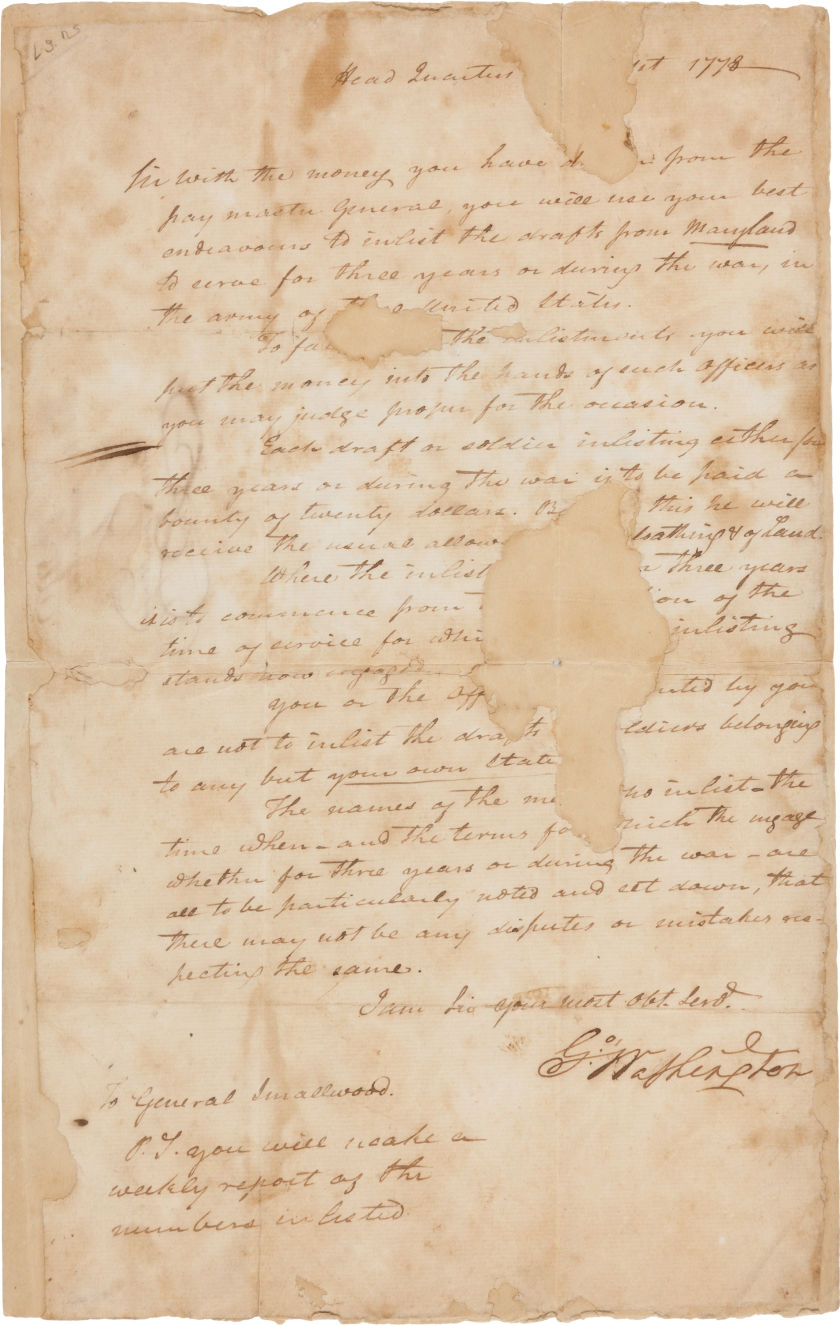 L.S. ns
Head Quarters st 1778
Sir With the money you have d from the
pay master General, you will use your best
endeavours to inlist the drafts from Maryland
to serve for three years or during the war, in
the army of the United States.
To fa the enlistments you will
put the money into the hands of such Officers as
you may judge proper for the occasion.
Each draft or soldier inlisting either for
three years or during the war is to be paid a
bounty of twenty dollars. Be this he will
receive the usual allow loathing & of Land.
Where the inlist r three years
it is to commence from t ion of the
time of service for whi inlisting
stands now engaged.
You or the Off nted by you
are not to inlist the drafts ldiers belonging
to any but your own State
The names of the me ho inlist – the
time when – and the terms fo which the ingage,
whether for three years or during the war – are
all to be particularly noted and set down, that
there may not be any disputes or mistakes res-
pecting the same.
I am Sir your most Obt. Servt.
Go: Washington
To General Smallwood.
P.S. you will make a
weekly report of the
numbers inlisted